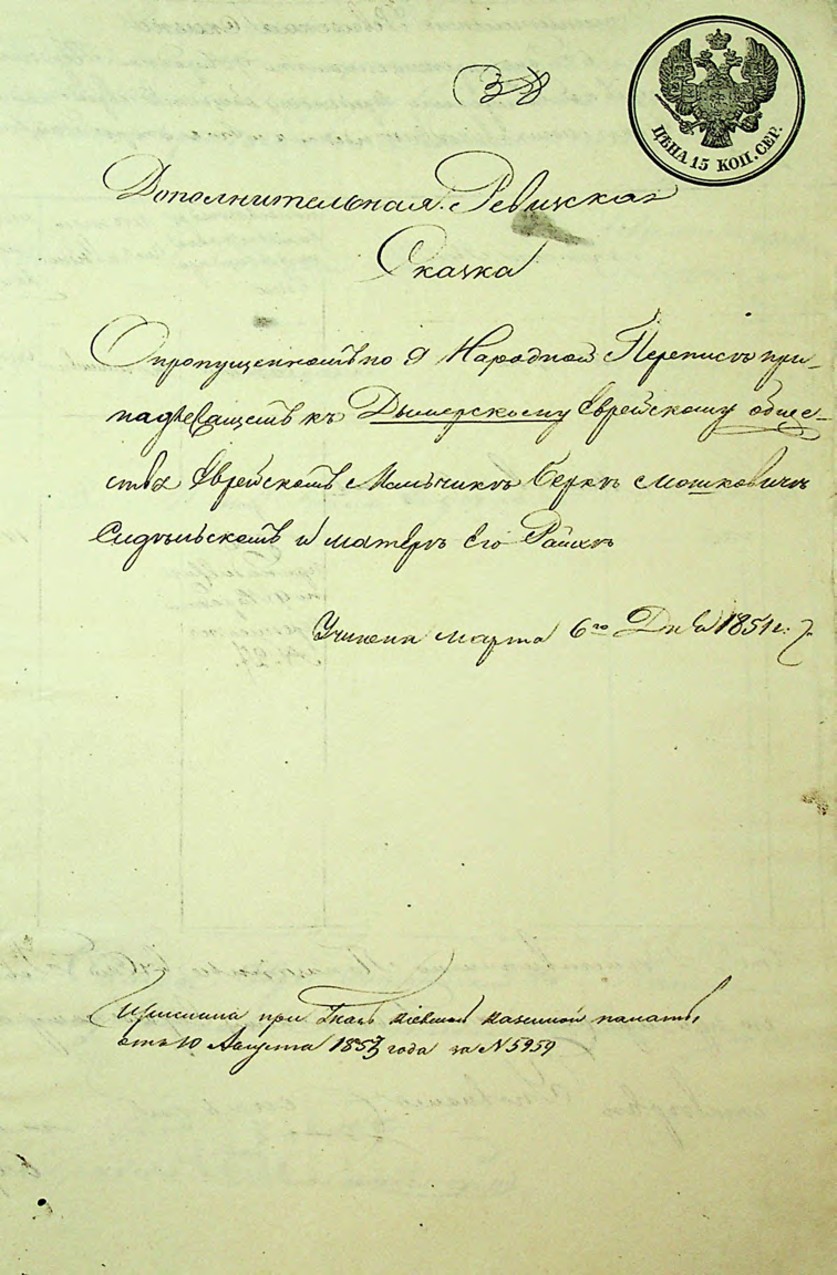 38
ЦѢНА 15 КОП. СЕР.
Дополнительная Ревизская
Сказка
О пропущенномъ по 9 Народной Переписи при-
надлежащемъ къ Дымерскому Еврейскому обще-
ству Еврейскомъ Мальчикѣ Беркѣ Мошковичѣ
и матерѣ Его
Учинена марта 6го Дня 1851г.
при Указѣ Кіевской Казенной палаты,
отъ 10 Августа 1853 года за N 5959